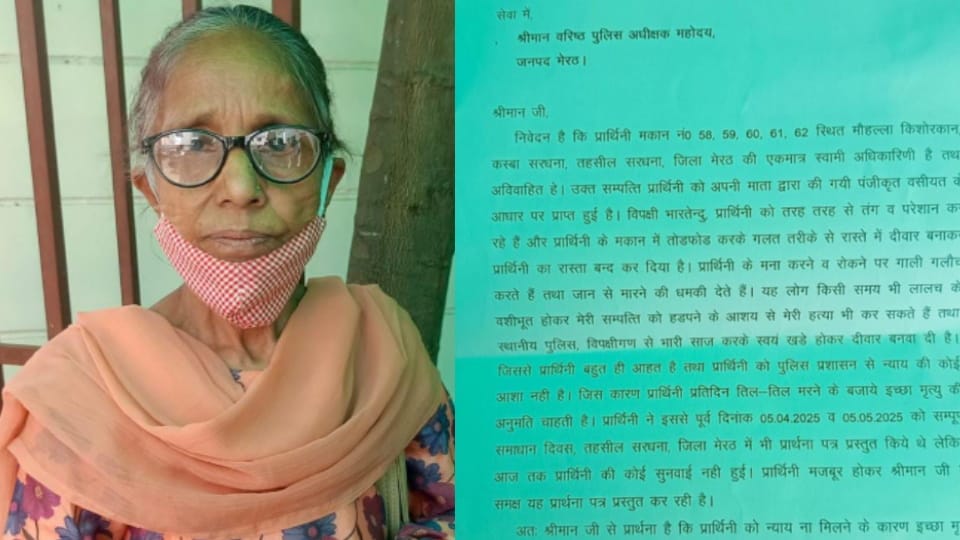 सेवा में,
श्रीमान वरिष्ठ पुलिस अधीक्षक महोदय,
जनपद मेरठ।
श्रीमान जी,
निवेदन है कि प्रार्थिनी मकान नं0 58, 59, 60, 61, 62 स्थित मौहल्ला किशोरकान,
कस्बा सरधना, तहसील सरधना, जिला मेरठ की एकमात्र स्वामी अधिकारिणी है तथ
अविवाहित हे। उक्त सम्पत्ति प्रार्थिनी को अपनी माता द्वारा की गयी पंजीकृत वसीयत के
आधार पर प्राप्त हुई है। विपक्षी भारतेन्दु, प्रार्थिनी को तरह तरह से तंग व परेशान कर
रहे है और प्रार्थिनी के मकान में तोडफोड करके गलत तरीके से रास्ते में दीवार बनाकर
प्रार्थिनी का रास्ता बन्द कर दिया है। प्रार्थिनी के मना करने व रोकने पर गाली गलौच
करते हैं तथा जान से मारने की धमकी देते हैं। यह लोग किसी समय भी लालच के
वशीभूत होकर मेरी सम्पत्ति को हडपने के आशय से मेरी हत्या भी कर सकते हैं तथा
स्थानीय पुलिस, विपक्षीगण से भारी साज करके स्वयं खडे होकर दीवार बनवा दी है।
जिससे प्रार्थिनी बहुत ही आहत है तथा प्रार्थिनी को पुलिस प्रशासन से न्याय की कोई
आशा नही है। जिस कारण प्रार्थिनी प्रतिदिन तिल–तिल मरने के बजाये इच्छा मृत्यु की
अनुमति चाहती है। प्रार्थिनी ने इससे पूर्व दिनांक 05.04.2025 व 05.05.2025 को सम्पूर्
समाधान दिवस, तहसील सरधना, जिला मेरठ में भी प्रार्थना पत्र प्रस्तुत किये थे लेकि
आज तक प्रार्थिनी की कोई सुनवाई नही हुई। प्रार्थिनी मजबूर होकर श्रीमान जी
समक्ष यह प्रार्थना पत्र प्रस्तुत कर रही है।
अतः श्रीमान जी से प्रार्थना है कि प्रार्थिनी को न्याय ना मिलने के कारण इच्छा मृ